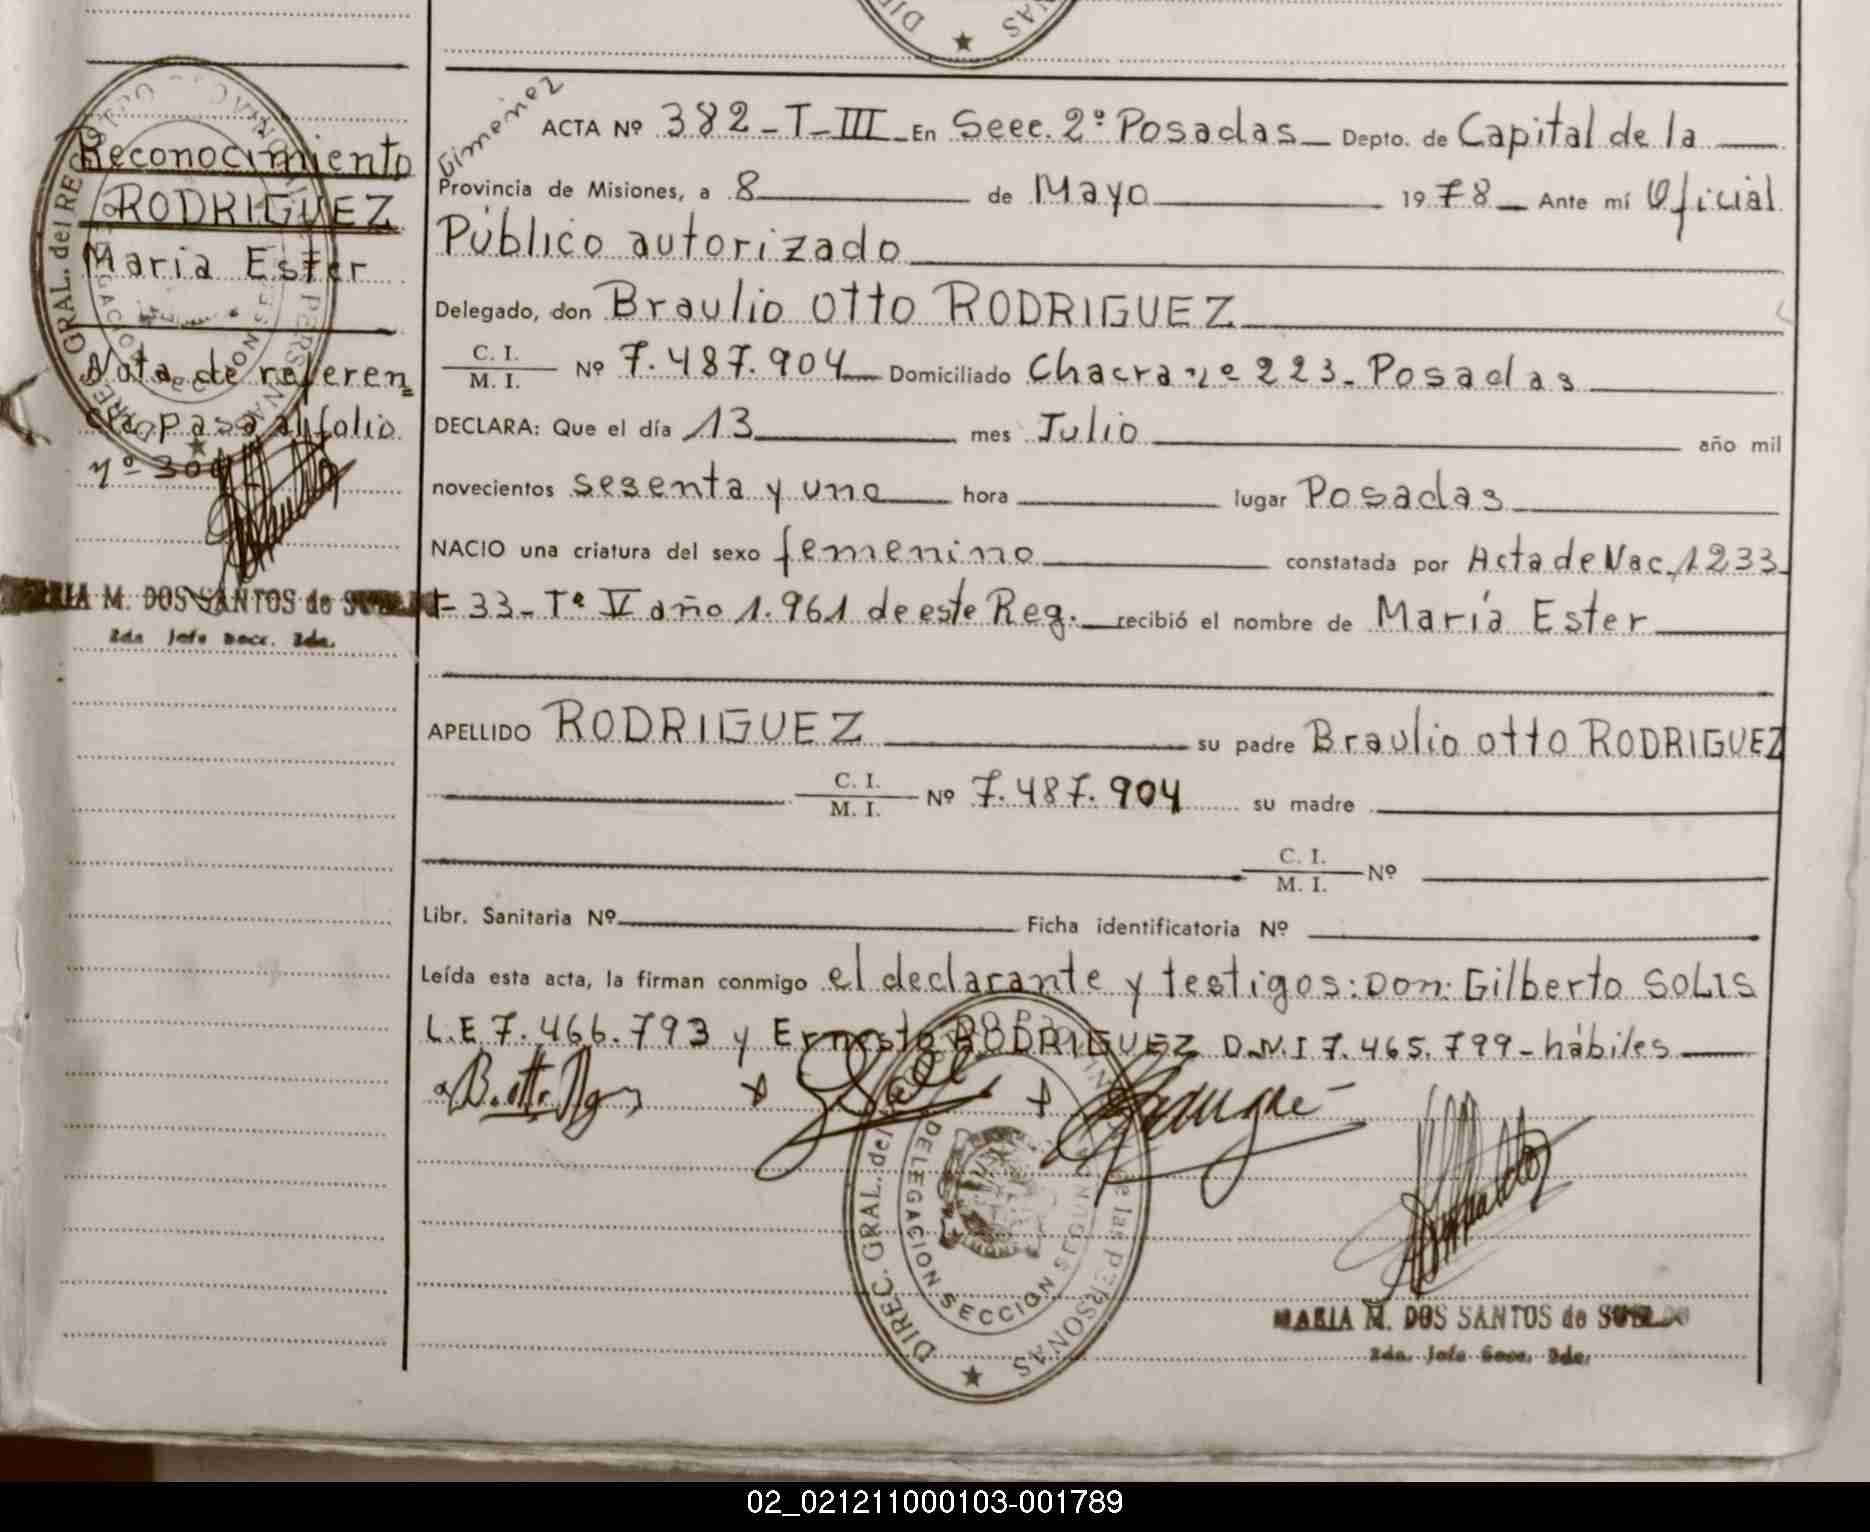 Reconocimiento
RODRIGUEZ
Maria Ester
Nota de referen=
cia pasa al folio
nº 300
MARIA M. DOS SANTOS de
2da Jefe Secc. 2da.
Gimenez
ACTA Nº 382-T-III-En Secc. 2º Posadas Depto. de Capital de la
Provincia de Misiones, a 8 de Mayo 1978 Ante mí Oficial
Público autorizado
Delegado, don Braulio Otto RODRIGUEZ
C. I.
M. I. Nº 7.487.904 Domiciliado Chacra nº 223-Posadas
DECLARA: Que el día 13 mes Julio año mil
novecientos sesenta y uno hora lugar Posadas
NACIO una criatura del sexo femenino constatada por Acta de Nac. 1233
F-33-Tº V año 1.961 de este Reg. recibió el nombre de María Ester
APELLIDO RODRIGUEZ su padre Braulio Otto RODRIGUEZ
C. I.
M. I. Nº 7.487.904 su madre
C. I.
M. I. Nº
Libr. Sanitaria Nº Ficha identificatoria Nº
Leída esta acta, la firman conmigo el declarante y testigos: Don: Gilberto SOLIS
L.E 7.466.793 y Ernesto RODRIGUEZ D.N.I 7.465.799-hábiles
DIREC. GRAL. del de las PERSONAS
DELEGACION SECCION SEGUNDA
MARIA M. DOS SANTOS de
2da. Jefe Secc. 2da.
02_021211000103-001789